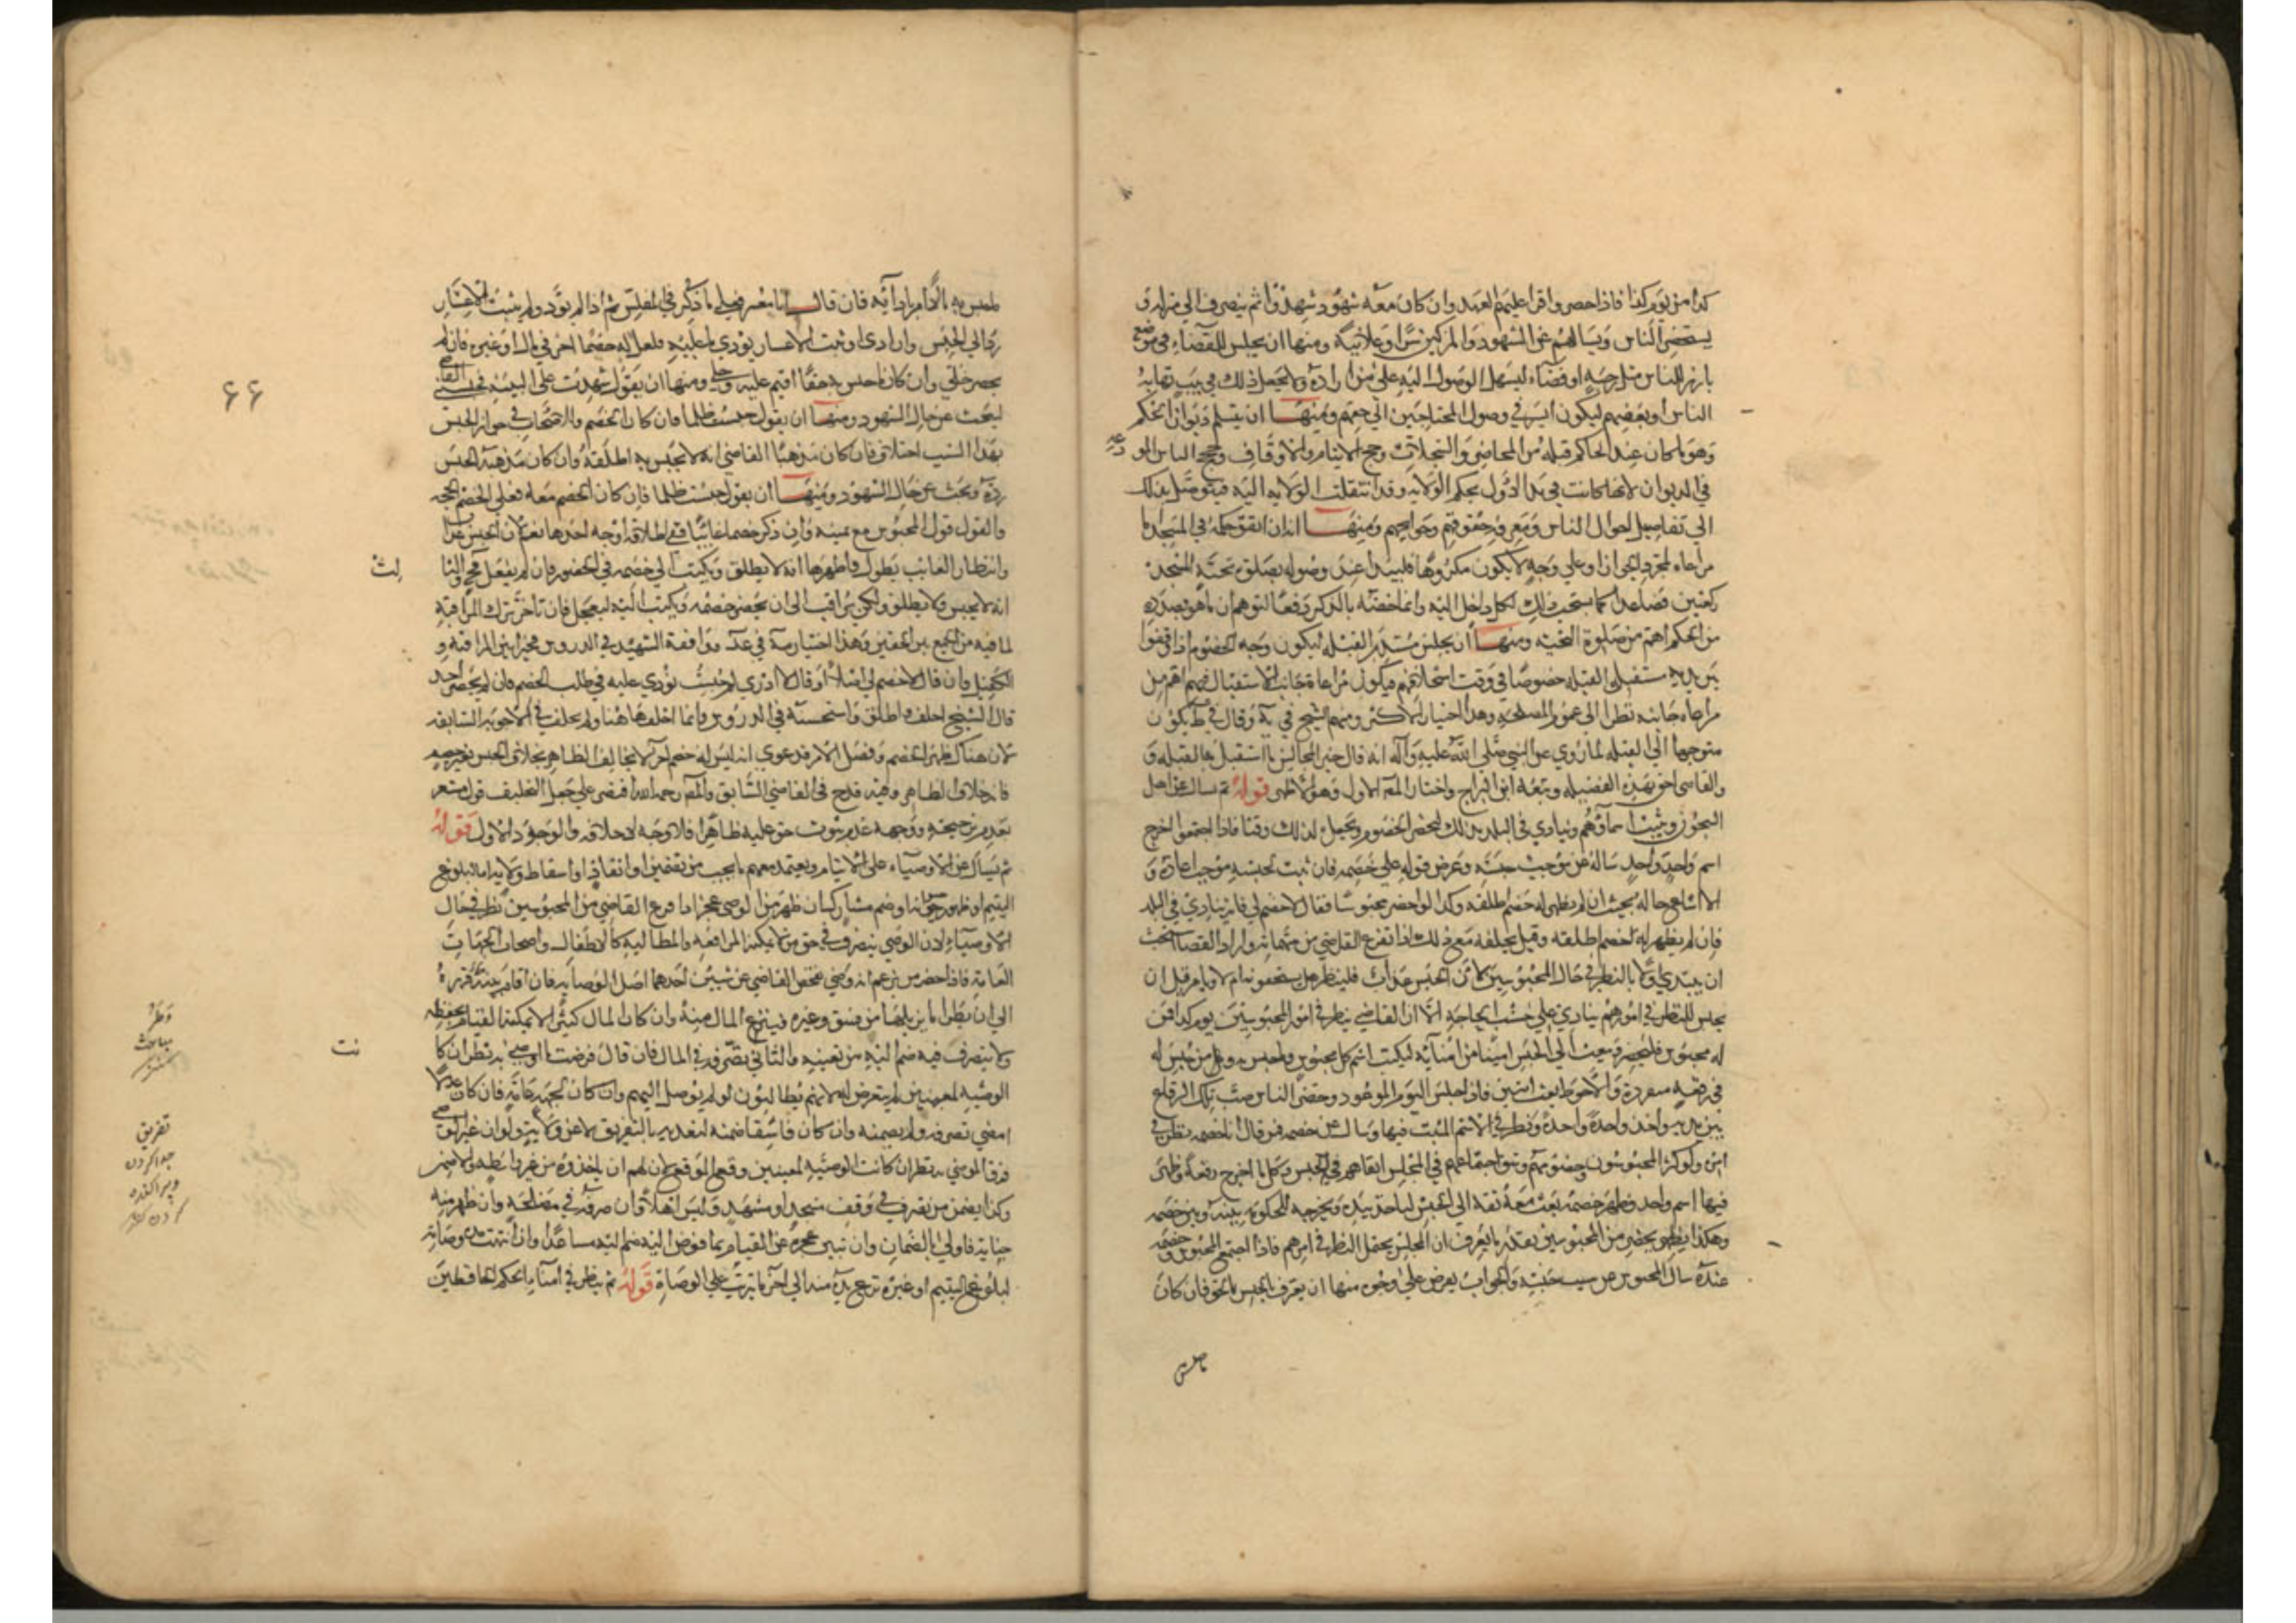 كذا من يوم كذا فاذا حضر واقرا عليهم العهد وان كان معه شهود شهدوا ثم ينصرف الى منزله و
يستحضر الناس ويسالهم عن الشهود والمزكين سرا وعلانية ومنها ان يجلس للقضاء في موضع
بارز للناس مثل رحبة او فضاء ليسهل الوصول اليه على من اراده ولا يجعل ذلك في بيت تهابه
الناس او بعضهم ليكون ايسر في وصول المحتاجين الى حقهم ومنها ان يتسلم ديوان الحكم
وهو ما كان عند الحاكم قبله من المحاضر والسجلات وحجج الايتام والاوقاف وحجج الناس المودعة
في الديوان لانها كانت في يد الاول بحكم الولاية وقد انتقلت الولاية اليه فيتوصل بذلك
الى تفاصيل احوال الناس ومعرفة حقوقهم وحوايجهم ومنها انه ان اتفق حكمه في المسجد اما
مراعاة لمجرد الجواز او على وجه لا يكون مكروها فليبدا عند وصوله بصلوة تحية المسجد
ركعتين فصاعدا كما يستحب ذلك لكل داخل اليه وانما خصه بالذكر دفعا لتوهم ان ما هو بصدده
من الحكم اهم من صلوة التحية ومنها ان يجلس مستدبر القبلة ليكون وجه الخصوم اذا وقفوا
بين يديه مستقبل القبلة خصوصا في وقت استحلافهم فيكون مراعاة جانب الاستقبال فيهم اهم من
مراعاة جانبه نظرا الى عموم المصلحة وهذا اختيار الاكثر ومنهم الشيخ في ية وقال في ط يكون
متوجها الى القبلة لما روي عن النبي صلى الله عليه واله انه قال خير المجالس ما استقبل بها القبلة و
والقاضي احق بهذه الفضيلة وتبعه ابن البراج واختار المص الاول وهو الاظهر قوله ثم يسال عن اهل
السجون ويثبت اسماؤهم وينادي في البلد بذلك ليحضر الخصوم ويجعل لذلك وقتا فاذا اجتمعوا اخرج
اسم واحد واحد ساله عن موجب حبسه وعرض قوله على خصمه فان ثبت لحبسه موجب اعاده و
الا اشاع حاله بحيث ان لم يظهر له خصم اطلقه وكذا لو احضر محبوسا فقال لا خصم لي فانه ينادي في البلد
فان لم يظهر له خصم اطلقه وقيل يحلفه مع ذلك اذا تفرغ القاضي من مهماته واراد القضا استحب
ان يبتدي اولا بالنظر في حال المحبوسين لان الحبس عذاب فلينظر هل يستحقونه ام لا ويامر قبل ان
يجلس للنظر في امرهم ينادي على حسب الحاجة الا ان القاضي ينظر في امر المحبوسين يوم كذا فمن
له محبوس فليحضر ويبعث الى الحبس امينا من امنائه ليكتب اسم كل محبوس وما حبس به ومن حبس له
في رقعة منفردة والاحوط بعث امينين فاذا جلس اليوم الموعود وحضر الناس صب تلك الرقاع
بين يديه واخذ واحدة واحدة ونظر في الاسم المثبت فيها وسال عن خصمه فمن قال انا خصمه نظر في
امره ولو كثر المحبوسون
فيها اسم واحد وظهر خصمه بعث معه ثقة الى الحبس لياخذ بيده ويخرجه للحكومة بينه وبين خصمه
وهكذا يظهر بحضر من المحبوسين بقدر ما يعرف ان المجلس يحتمل النظر في امرهم فاذا اجتمع المحبوس وخصمه
عنده سال المحبوس عن سبب حبسه والجواب يفرض على وجوه منها ان يعترف بالحبس بالحق فان كان
ما حبس
ما حبس به مالا امر بادائه فان قال انا معسر فعلى ما ذكر في المفلس ثم اذا لم يؤد ولم يثبت الاعسار
رد الى الحبس وان ادى او ثبت الاعسار نودي عليه فلعل له خصما اخر في مال او غيره فان لم
يحضر خلي وان كان ما حبس به حقا اقيم عليه وخلي ومنها ان يقول شهدت على البينة فحبسني القاضي
ليبحث عن حال الشهود ومنها ان يقول حبست ظلما فان كان الخصم
بهذا السبب اختلاف فان كان مذهب القاضي انه لا يحبس به اطلقه وان كان مذهبه الحبس
رده وبحث عن حال الشهود ومنها ان يقول حبست ظلما فان كان الخصم معه فعلى الخصم الحجة
والقول قول المحبوس مع يمينه وان ذكر خصما غائبا ففي اطلاقه اوجه احدها نعم لان الحبس عذاب
وانتظار الغائب يطول واظهرها انه لا يطلق ويكتب الى خصمه في الحضور فان لم يفعل
انه لا يحبس ولا يطلق ولكن يراقب الى ان يحضر خصمه ويكتب اليه ليعجل فان تاخر ترك المراقبة
لما فيه من الجمع بين الحقين وهذا اختياره في عد ووافقه الشهيد في الدروس مخيرا بين المراقبة و
الكفيل وان قال لا خصم لي اصلا او قال لا ادري لم حبست نودي عليه في طلب الخصم فان لم يحضر احد
قال الشيخ احلف واطلق واستحسنه في الدروس وانما احلف هاهنا ولم يحلف في الاجوبة السابقة
لان هناك ظهر الخصم وفصل الامر فدعوى ان ليس له خصم اخر لا يخالف الظاهر بخلاف الحبس بغير خصم
فانه خلاف الظاهر وفيه قدح في القاضي السابق والمص رحمه الله اقتصر على جعل التحليف قولا مشعرا
بعدم ترجيحه ووجهه عدم ثبوت حق عليه ظاهرا فلا وجه لاحلافه والوجه الاول قوله
ثم يسال عن الاوصياء على الايتام ويعتمد معهم ما يجب من تضمين او انفاذ او اسقاط ولاية اما لبلوغ
اليتيم او ظهور خيانة او ضم مشارك ان ظهر من الوصي عجز اذا فرغ القاضي من المحبوسين نظر في حال
الاوصياء لان الوصي يتصرف في حق من لا يمكنه المرافعة والمطالبة كالاطفال واصحاب الجهات
العامة فاذا حضر من يزعم انه وصي تفحص القاضي عن شيئين احدهما اصل الوصاية فان اقام بينة قرره
الى ان يطرا ما يزيلها من فسق وغيره فينتزع المال منه وان كان المال كثيرا لا يمكنه القيام بحفظه
ولا يتصرف فيه ضم اليه من يعينه والثاني تصرفه في المال فان قال فرضت ما اوصي به نظر ان كانت
الوصية لمعينين لم يتعرض له لانهم يطالبون لو لم يوصل اليهم وان كان لجهة عامة فان كان عدلا
امضي تصرفه ولم يضمنه وان كان فاسقا ضمنه لتعديه بالتفريق لا عن ولاية ولو ان غير الوصي
فرق الموصى به نظر ان كانت الوصية لمعينين وقع الموقع لان لهم ان ياخذوه من غير واسطة والا ضمن
وكذا يضمن من تصرف في وقف مسجد او مشهد وليس اهلا وان صرفه في مصلحة وان ظهر منه
خيانة فاولى بالضمان وان تبين عجزه عن القيام بما فوض اليه ضم اليه مساعدا وان انتهت مدة وصايته
لبلوغ اليتيم او غيره نزع يده منه الى اخر ما يترتب على الوصاة قوله ثم ينظر في امناء الحكم الحافظين
٦٦
تفريق
جدا كردن
وپراكنده
كردن